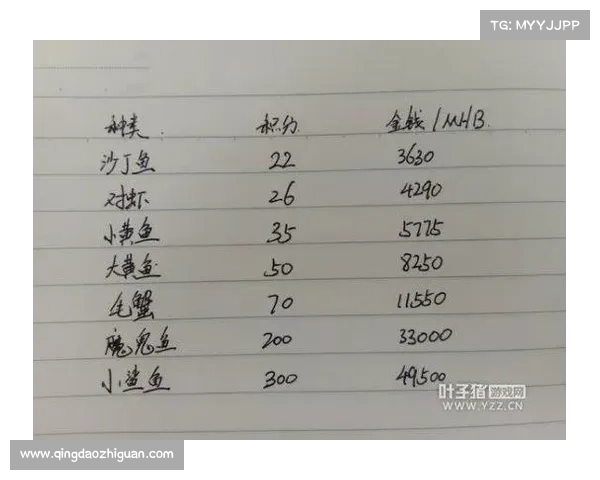 TG: MYYJJPP
种类 积分 金钱/MHB
沙丁鱼 22 3630
对虾 26 4290
小黄鱼 35 5775
大黄鱼 50 8250
毛蟹 70 11,550
魔鬼鱼 200 33000
小鲨鱼 300 49,500
叶子猪 游戏网
www.YZZ.CN
www.qingdaozhiguan.com